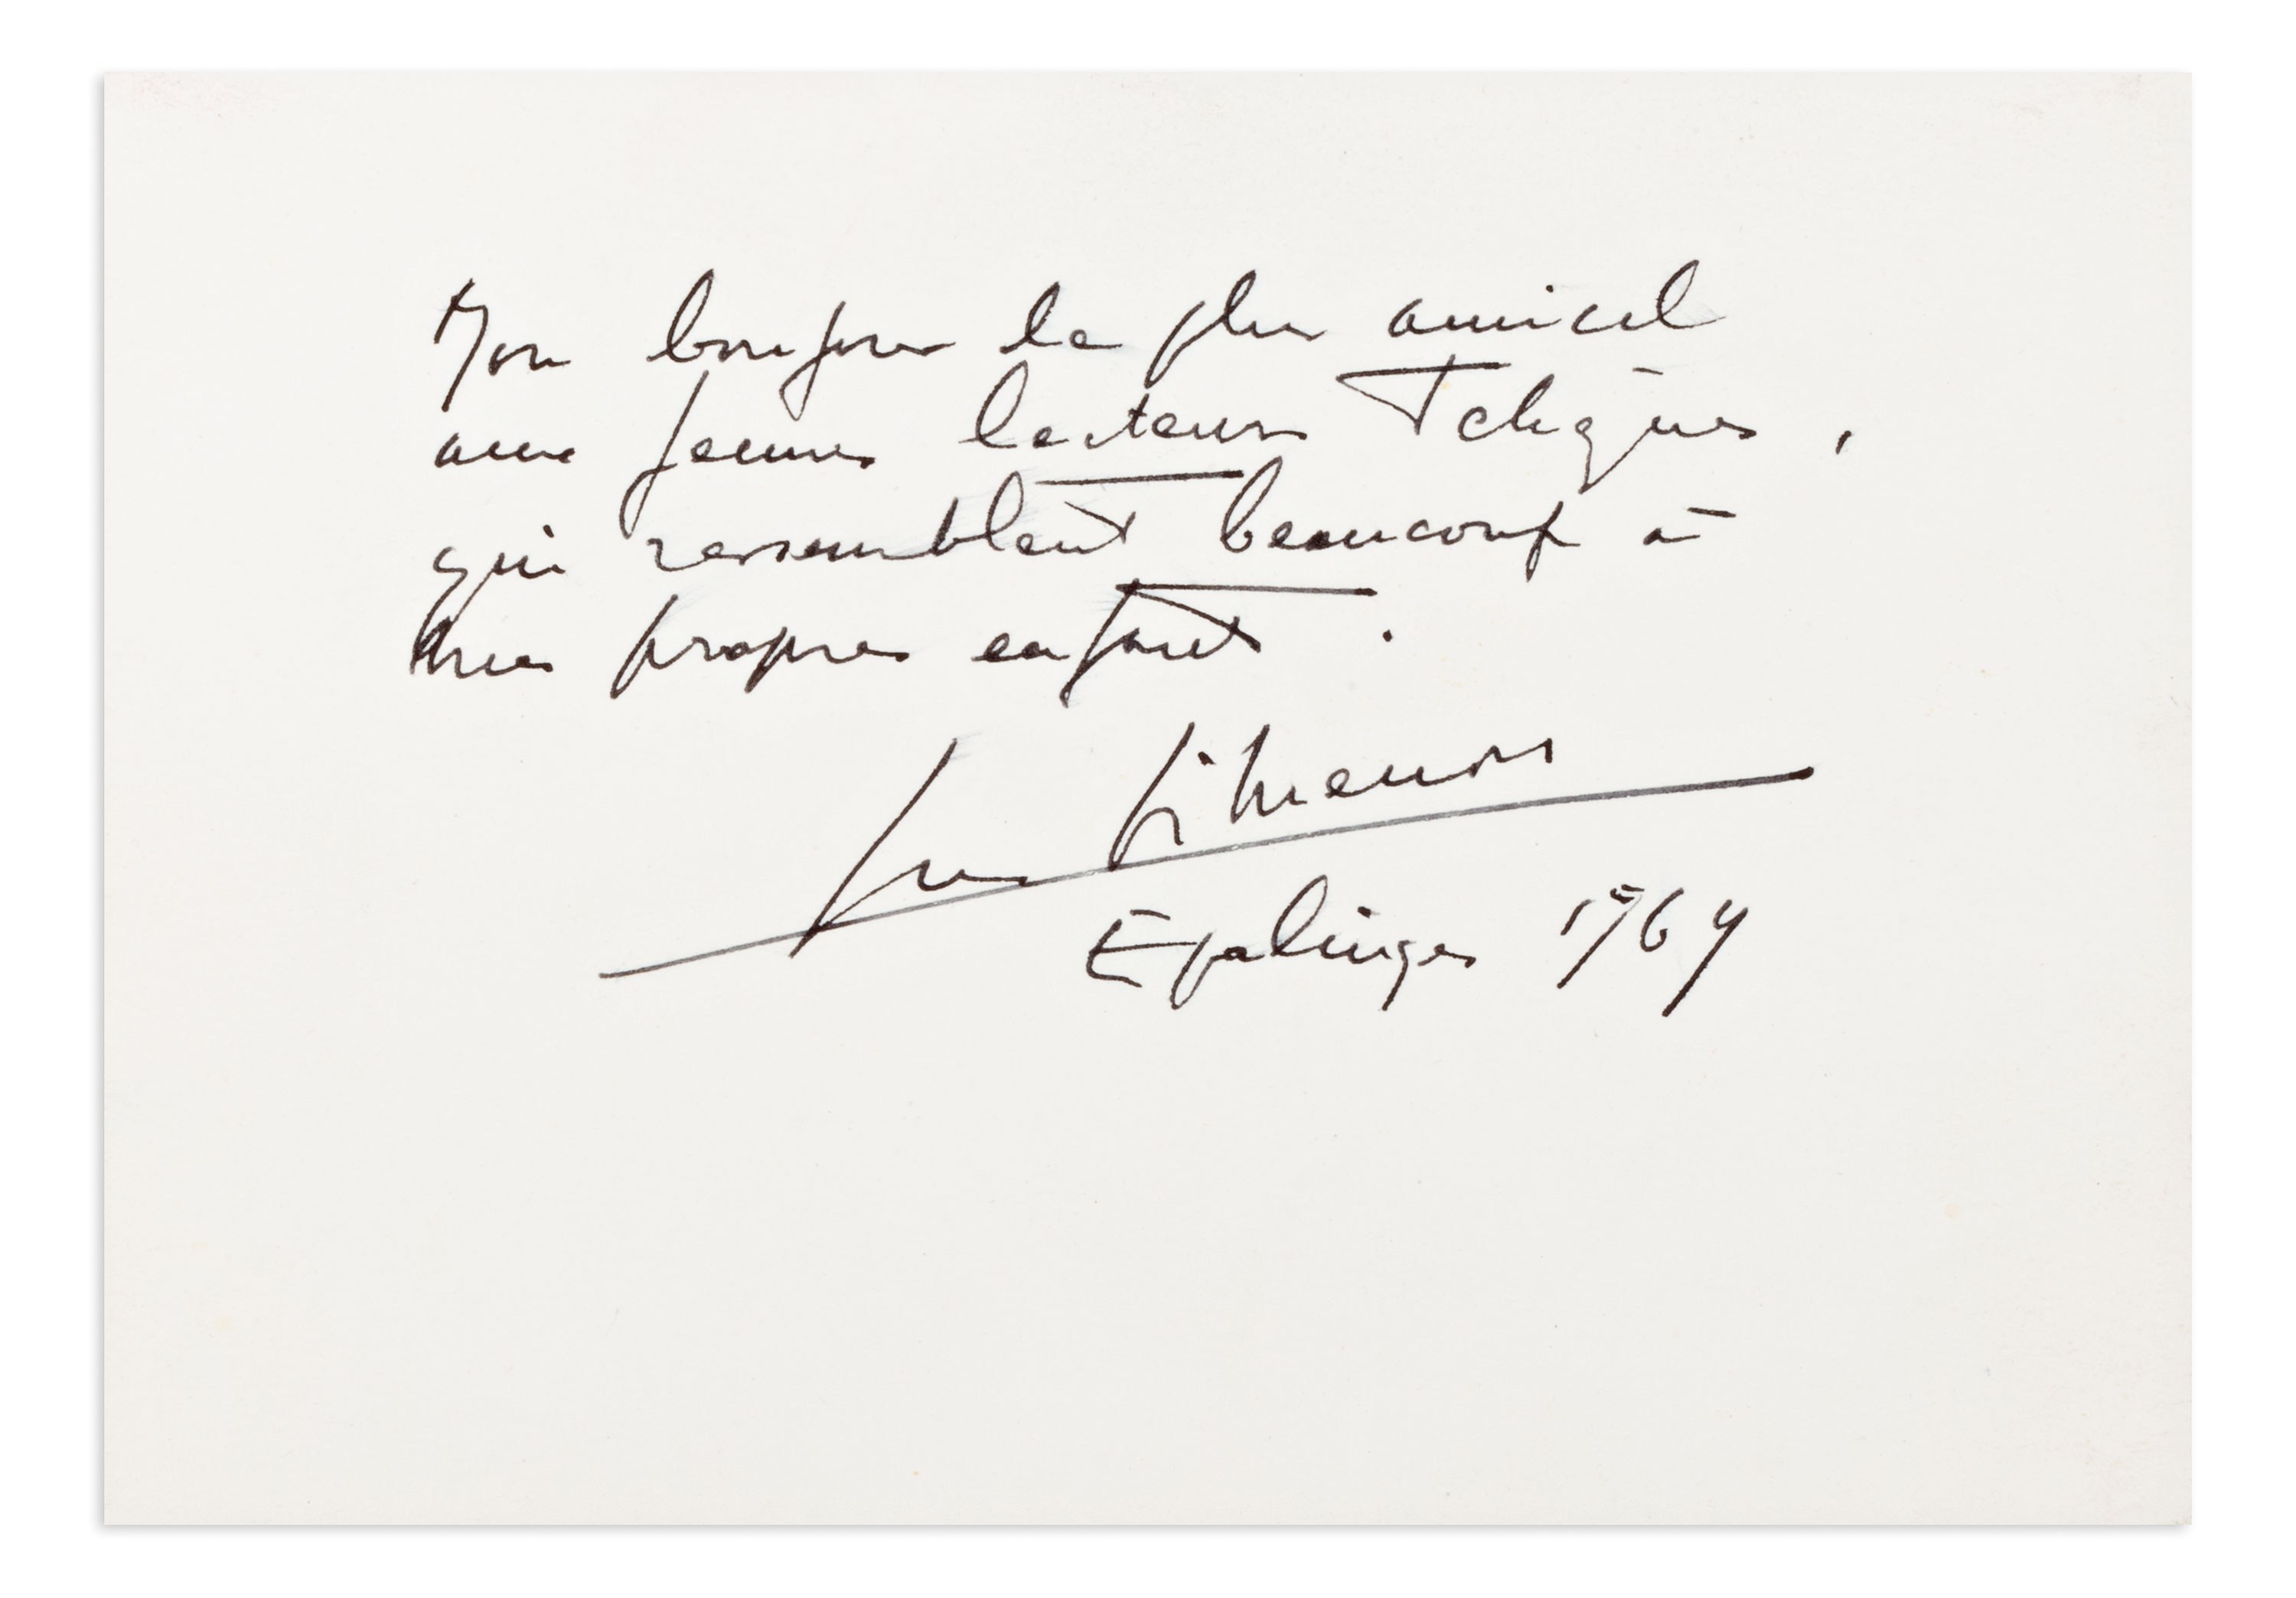 Mon bonjour le plus amical
aux jeunes lecteurs Tchèques,
qui ressemblent beaucoup à
mes propres enfants.
Simenon
Epalinges 1969